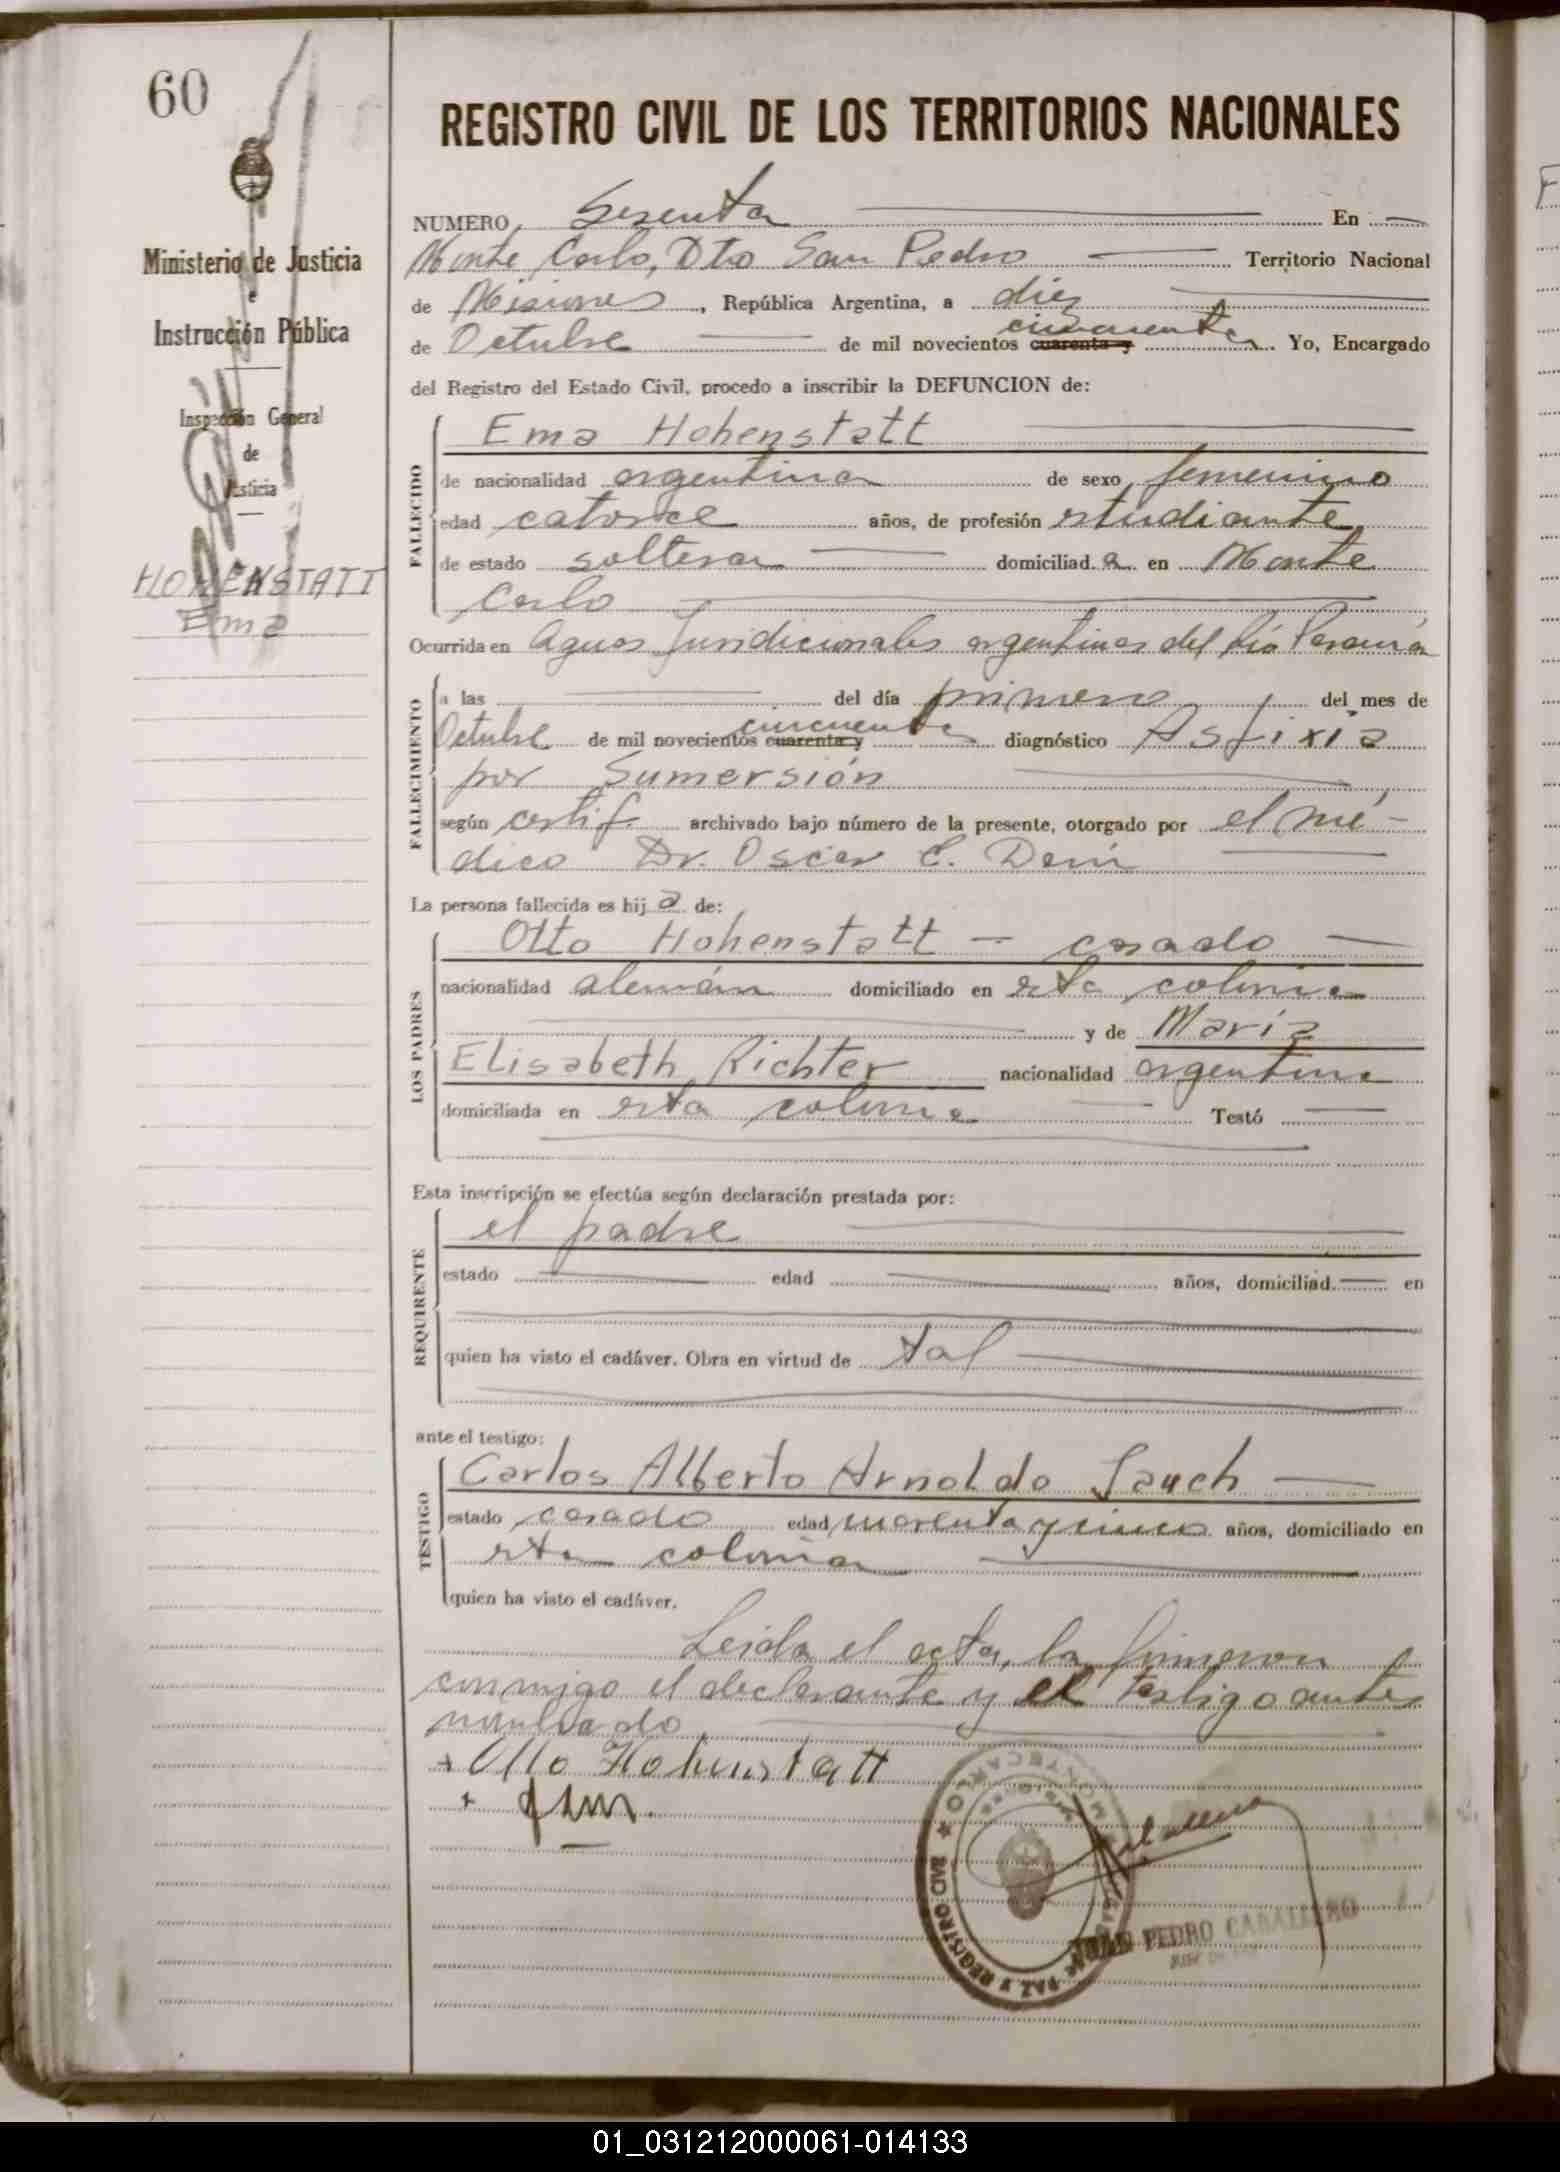 60
Ministerio de Justicia
e
Instrucción Pública
Inspección General
de
Justicia
HOHENSTATT
Ema
REGISTRO CIVIL DE LOS TERRITORIOS NACIONALES
NUMERO Sesenta En
Monte Carlo, Dto San Pedro Territorio Nacional
de Misiones, República Argentina, a diez
cincuenta
de Octubre de mil novecientos cuarenta y Yo, Encargado
del Registro del Estado Civil, procedo a inscribir la DEFUNCION de:
FALLECIDO
Ema Hohenstatt
de nacionalidad argentina de sexo femenino
edad catorce años, de profesión estudiante
de estado soltera domiciliad a en Monte
Carlo
Ocurrida en Aguas Juridicionales argentinas del río Paraná
FALLECIMIENTO
a las del día primero del mes de
cincuenta
Octubre de mil novecientos cuarenta y diagnóstico Asfixia
por Sumersión
según certif. archivado bajo número de la presente, otorgado por el mé-
dico Dr. Oscar C.
La persona fallecida es hij a de:
LOS PADRES
Otto Hohenstatt - casado
nacionalidad alemán domiciliado en esta colonia
y de María
Elisabeth Richter nacionalidad argentina
domiciliada en esta colonia Testó
Esta inscripción se efectúa según declaración prestada por:
REQUIRENTE
el padre
estado edad años, domiciliad en
quien ha visto el cadáver. Obra en virtud de tal
ante el testigo:
TESTIGO
Carlos Alberto Arnoldo Jauch
estado casado edad cuarenta y cinco años, domiciliado en
esta colonia
quien ha visto el cadáver.
Leída el acta, la firmaron
conmigo el declarante y el testigo antes
nombrado
+ Otto Hohenstatt
+
MONTECARLO ★ PAZ Y REGISTRO
JUAN PEDRO CABALLERO
JUEZ DE PAZ
01_031212000061-014133